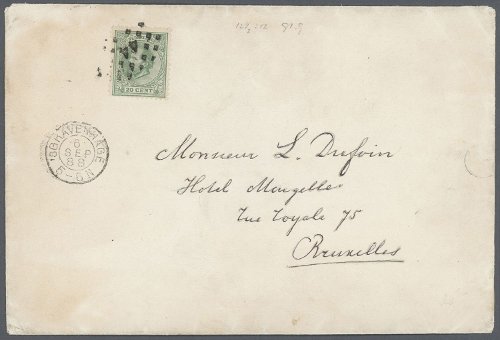 12½:12
20 CENT
'SGRAVENHAGE
6
SEP
88
5-6N
Monsieur L. Dufoin
Hotel Mengelle
Rue Royale 75
Bruxelles